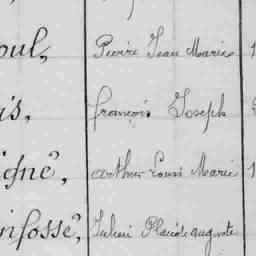 oul, Pierre Jean Marie
is, françois Joseph
igné, arthur Louis Marie
ifosse, Julien Placide auguste